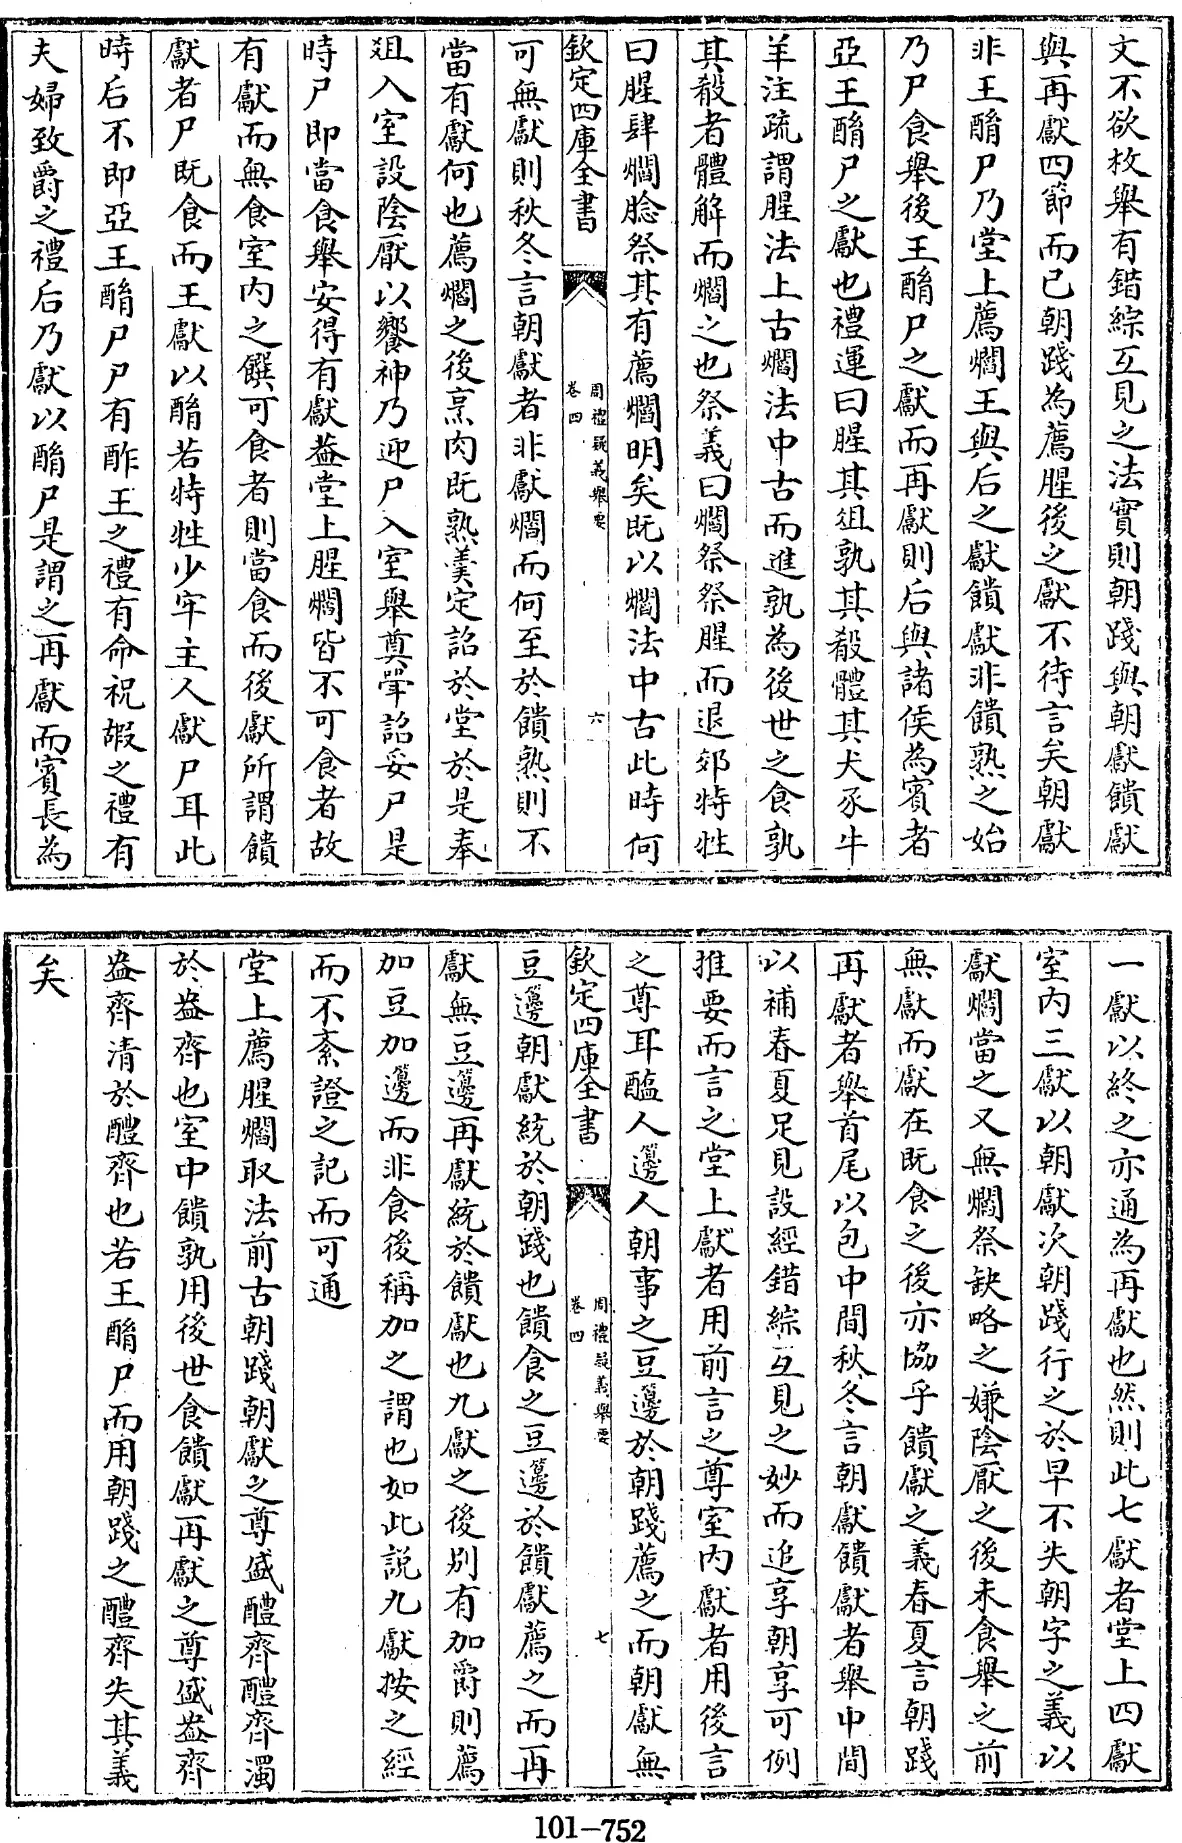 文不欲枚舉有錯綜互見之法實則朝踐與朝獻饋獻
與再獻四節而已朝踐為薦腥後之獻不待言矣朝獻
非王酳尸乃堂上薦爓王與后之獻饋獻非饋熟之始
乃尸食舉後王酳尸之獻而再獻則后與諸侯為賓者
亞王酳尸之獻也禮運曰腥其俎孰其殽體其犬豕牛
羊注疏謂腥法上古爓法中古而進孰為後世之食孰
其殽者體解而爓之也祭義曰爓祭祭腥而退郊特牲
曰腥肆爓腍祭其有薦爓明矣既以爓法中古此時何
欽定四庫全書
周禮疑義舉要
卷四
六
可無獻則秋冬言朝獻者非獻爓而何至於饋熟則不
當有獻何也薦爓之後烹肉既熟羹定詔於堂於是奉
俎入室設陰厭以饗神乃迎尸入室舉奠斝詔妥尸是
時尸即當食舉安得有獻葢堂上腥爓皆不可食者故
有獻而無食室内之饌可食者則當食而後獻所謂饋
獻者尸既食而王獻以酳若特牲少牢主人獻尸耳此
時后不即亞王酳尸尸有酢王之禮有命祝嘏之禮有
夫婦致爵之禮后乃獻以酳尸是謂之再獻而賓長為
一獻以終之亦通為再獻也然則此七獻者堂上四獻
室内三獻以朝獻次朝踐行之於早不失朝字之義以
獻爓當之又無爓祭缺略之嫌陰厭之後未食舉之前
無獻而獻在既食之後亦協乎饋獻之義春夏言朝踐
再獻者舉首尾以包中間秋冬言朝獻饋獻者舉中間
以補春夏足見設經錯綜互見之妙而追享朝享可例
推要而言之堂上獻者用前言之尊室内獻者用後言
之尊耳醢人籩人朝事之豆籩於朝踐薦之而朝獻無
欽定四庫全書
周禮疑義舉要
卷四
七
豆籩朝獻統於朝踐也饋食之豆籩於饋獻薦之而再
獻無豆籩再獻統於饋獻也九獻之後别有加爵則薦
加豆加籩而非食後稱加之謂也如此説九獻按之經
而不紊證之記而可通
堂上薦腥爓取法前古朝踐朝獻之尊盛醴齊醴齊濁
於盎齊也室中饋孰用後世食饋獻再獻之尊盛盎齊
盎齊清於醴齊也若王酳尸而用朝踐之醴齊失其義
矣
101-752